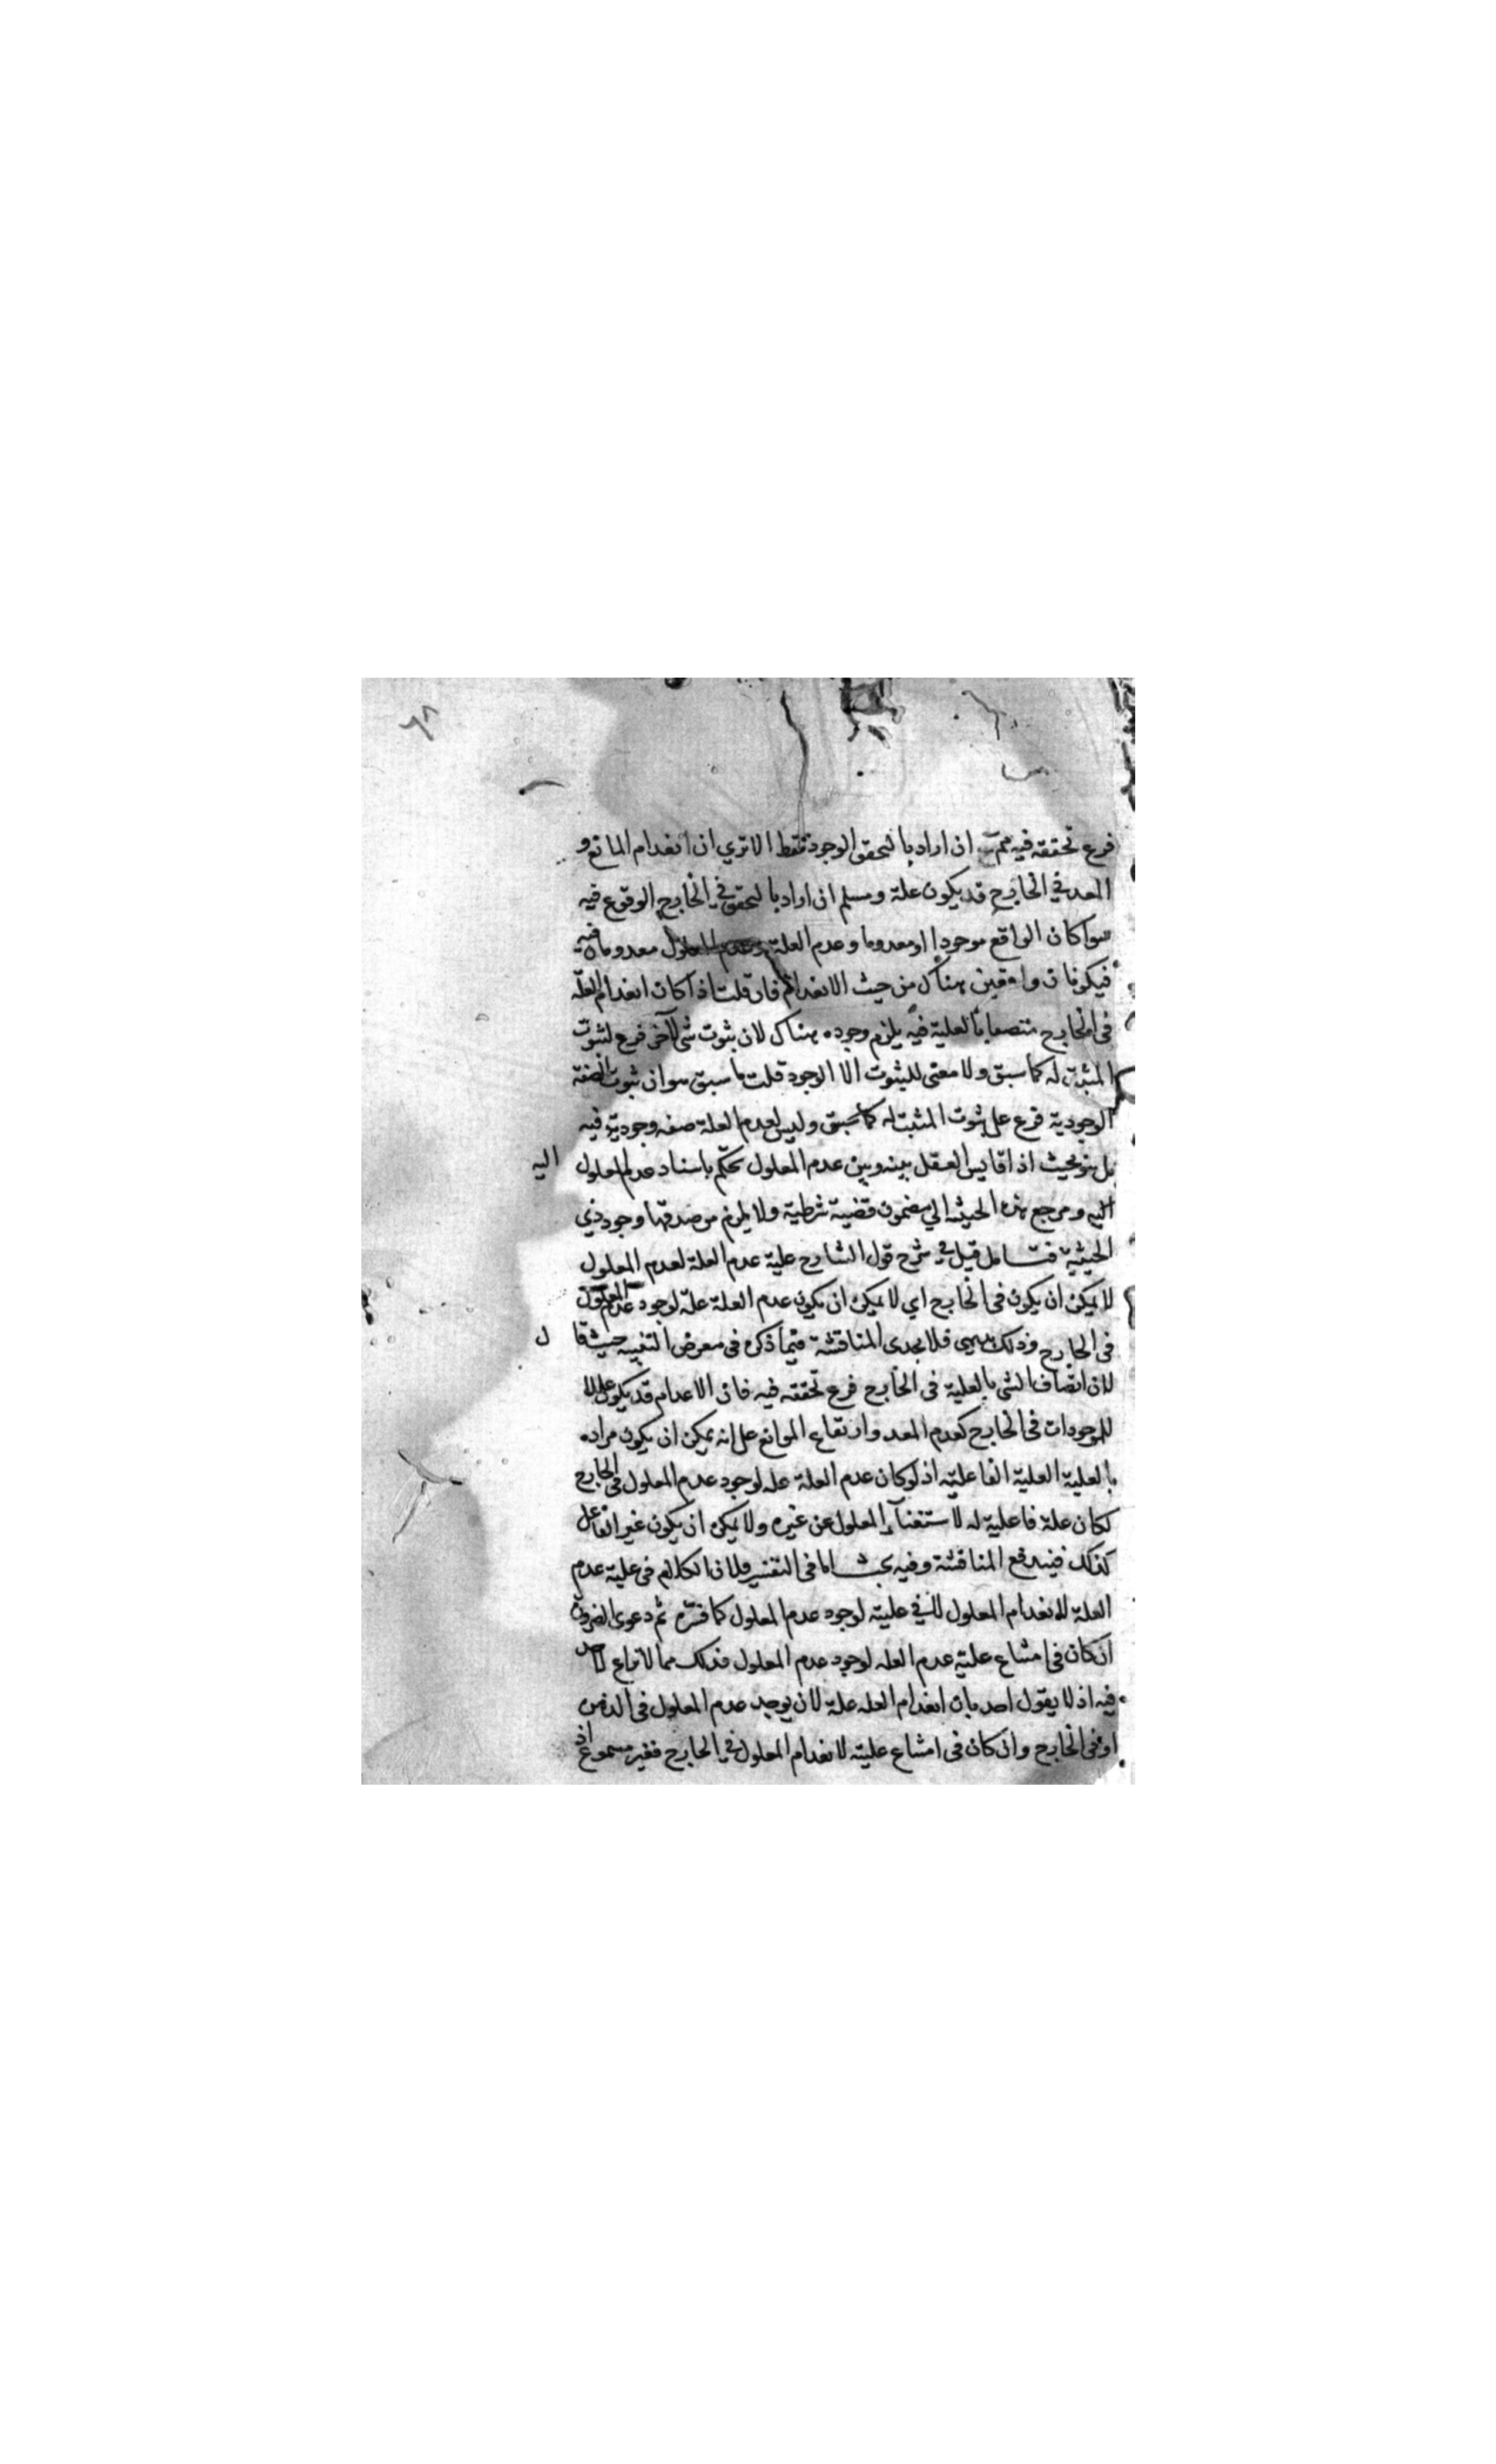 ٦٨
فرع تحققه فيه مم ان اراد بالتحقق الوجود فقط الا تري ان انعدام المانع و
المعد في الخارج قد يكون علة ومسلم ان اراد بالتحقق في الخارج الوقوع فيه
سوا كان الواقع موجودا او معدوما وعدم العلة وعدم المعلول معدومان فيه
فيكونان واقعين هناك من حيث الانعدام فان قلت اذا كان انعدام العلة
في الخارج متصفا بالعلية فيه يلزم وجوده هناك لان ثبوت شي لآخر فرع لثبوت
المثبت له كما سبق ولا معنى للثبوت الا الوجود قلت ما سبق هو ان ثبوت الصفة
الوجودية فرع على ثبوت المثبت له كما سبق وليس لعدم العلة صفة وجودية فيه
بل هو بحيث اذا قايس العقل بينه وبين عدم المعلول حكم باسناد عدم المعلول اليه
اليه ومرجع هذه الحيثية الي مضمون قضية شرطية ولا يلزم من صدقها وجود ذي
الحيثية فتامل قيل في شرح قول الشارح علية عدم العلة لعدم المعلول
لا يمكن ان يكون في الخارج اي لا يمكن ان يكون عدم العلة علة لوجود عدم المعلول
في الخارج وذلك بديهي فلا يجدي المناقشة فيما ذكره في معرض التنبيه حيث قا ل
لان اتصاف الشي بالعلية في الخارج فرع تحققه فيه فان الاعدام قد يكون عللا
للموجودات في الخارج كعدم المعد وارتفاع الموانع على انه يمكن ان يكون مراده
بالعلية العلية الفاعلية اذ لو كان عدم العلة علة لوجود عدم المعلول في الخارج
لكان علة فاعلية له لاستغناء المعلول عن غيره ولا يمكن ان يكون غير الفاعل
كذلك فيندفع المناقشة وفيه بحث اما في التفسير فلان الكلام في علية عدم
العلة لانعدام المعلول لا في علية لوجود عدم المعلول كما فسره ثم دعوى الضرورة
ان كان في امتناع علية عدم العله لوجود عدم المعلول فذلك مما لا نزاع لاحد
فيه اذ لا يقول احد بان انعدام العله علة لان يوجد عدم المعلول في الذهن
او في الخارج وان كان في امتناع علية لانعدام المعلول في الخارج فغير مسموع اذ